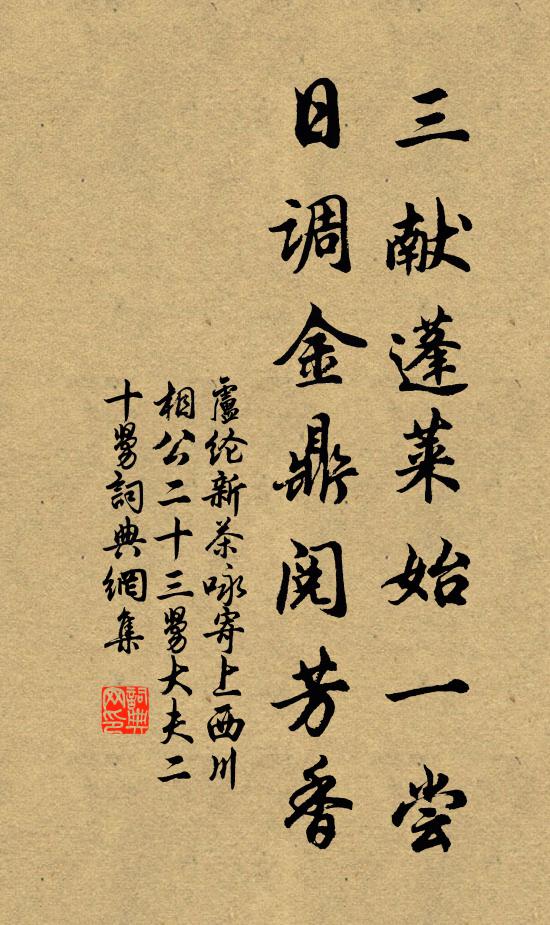 三献蓬莱始一尝
日调金鼎阅芳香
盧纶新茶咏寄上西川
相公二十三舅大夫二
十舅詞典網集
詞典网印